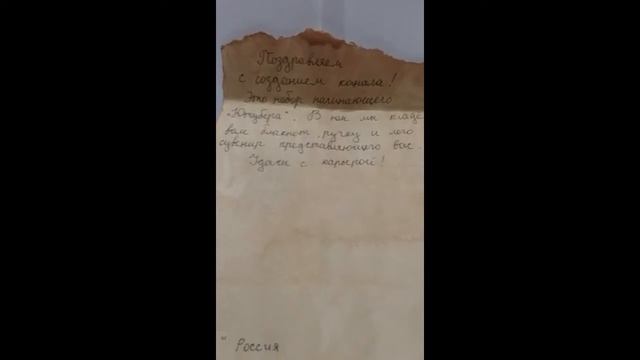 Поздравляем
с созданием канала!
Это набор начинающего
„Ютубера“. В нём мы кладе
вам блокнот, ручку и лего
сувенир представляющего вас.
Удачи с карьерой!
" Россия